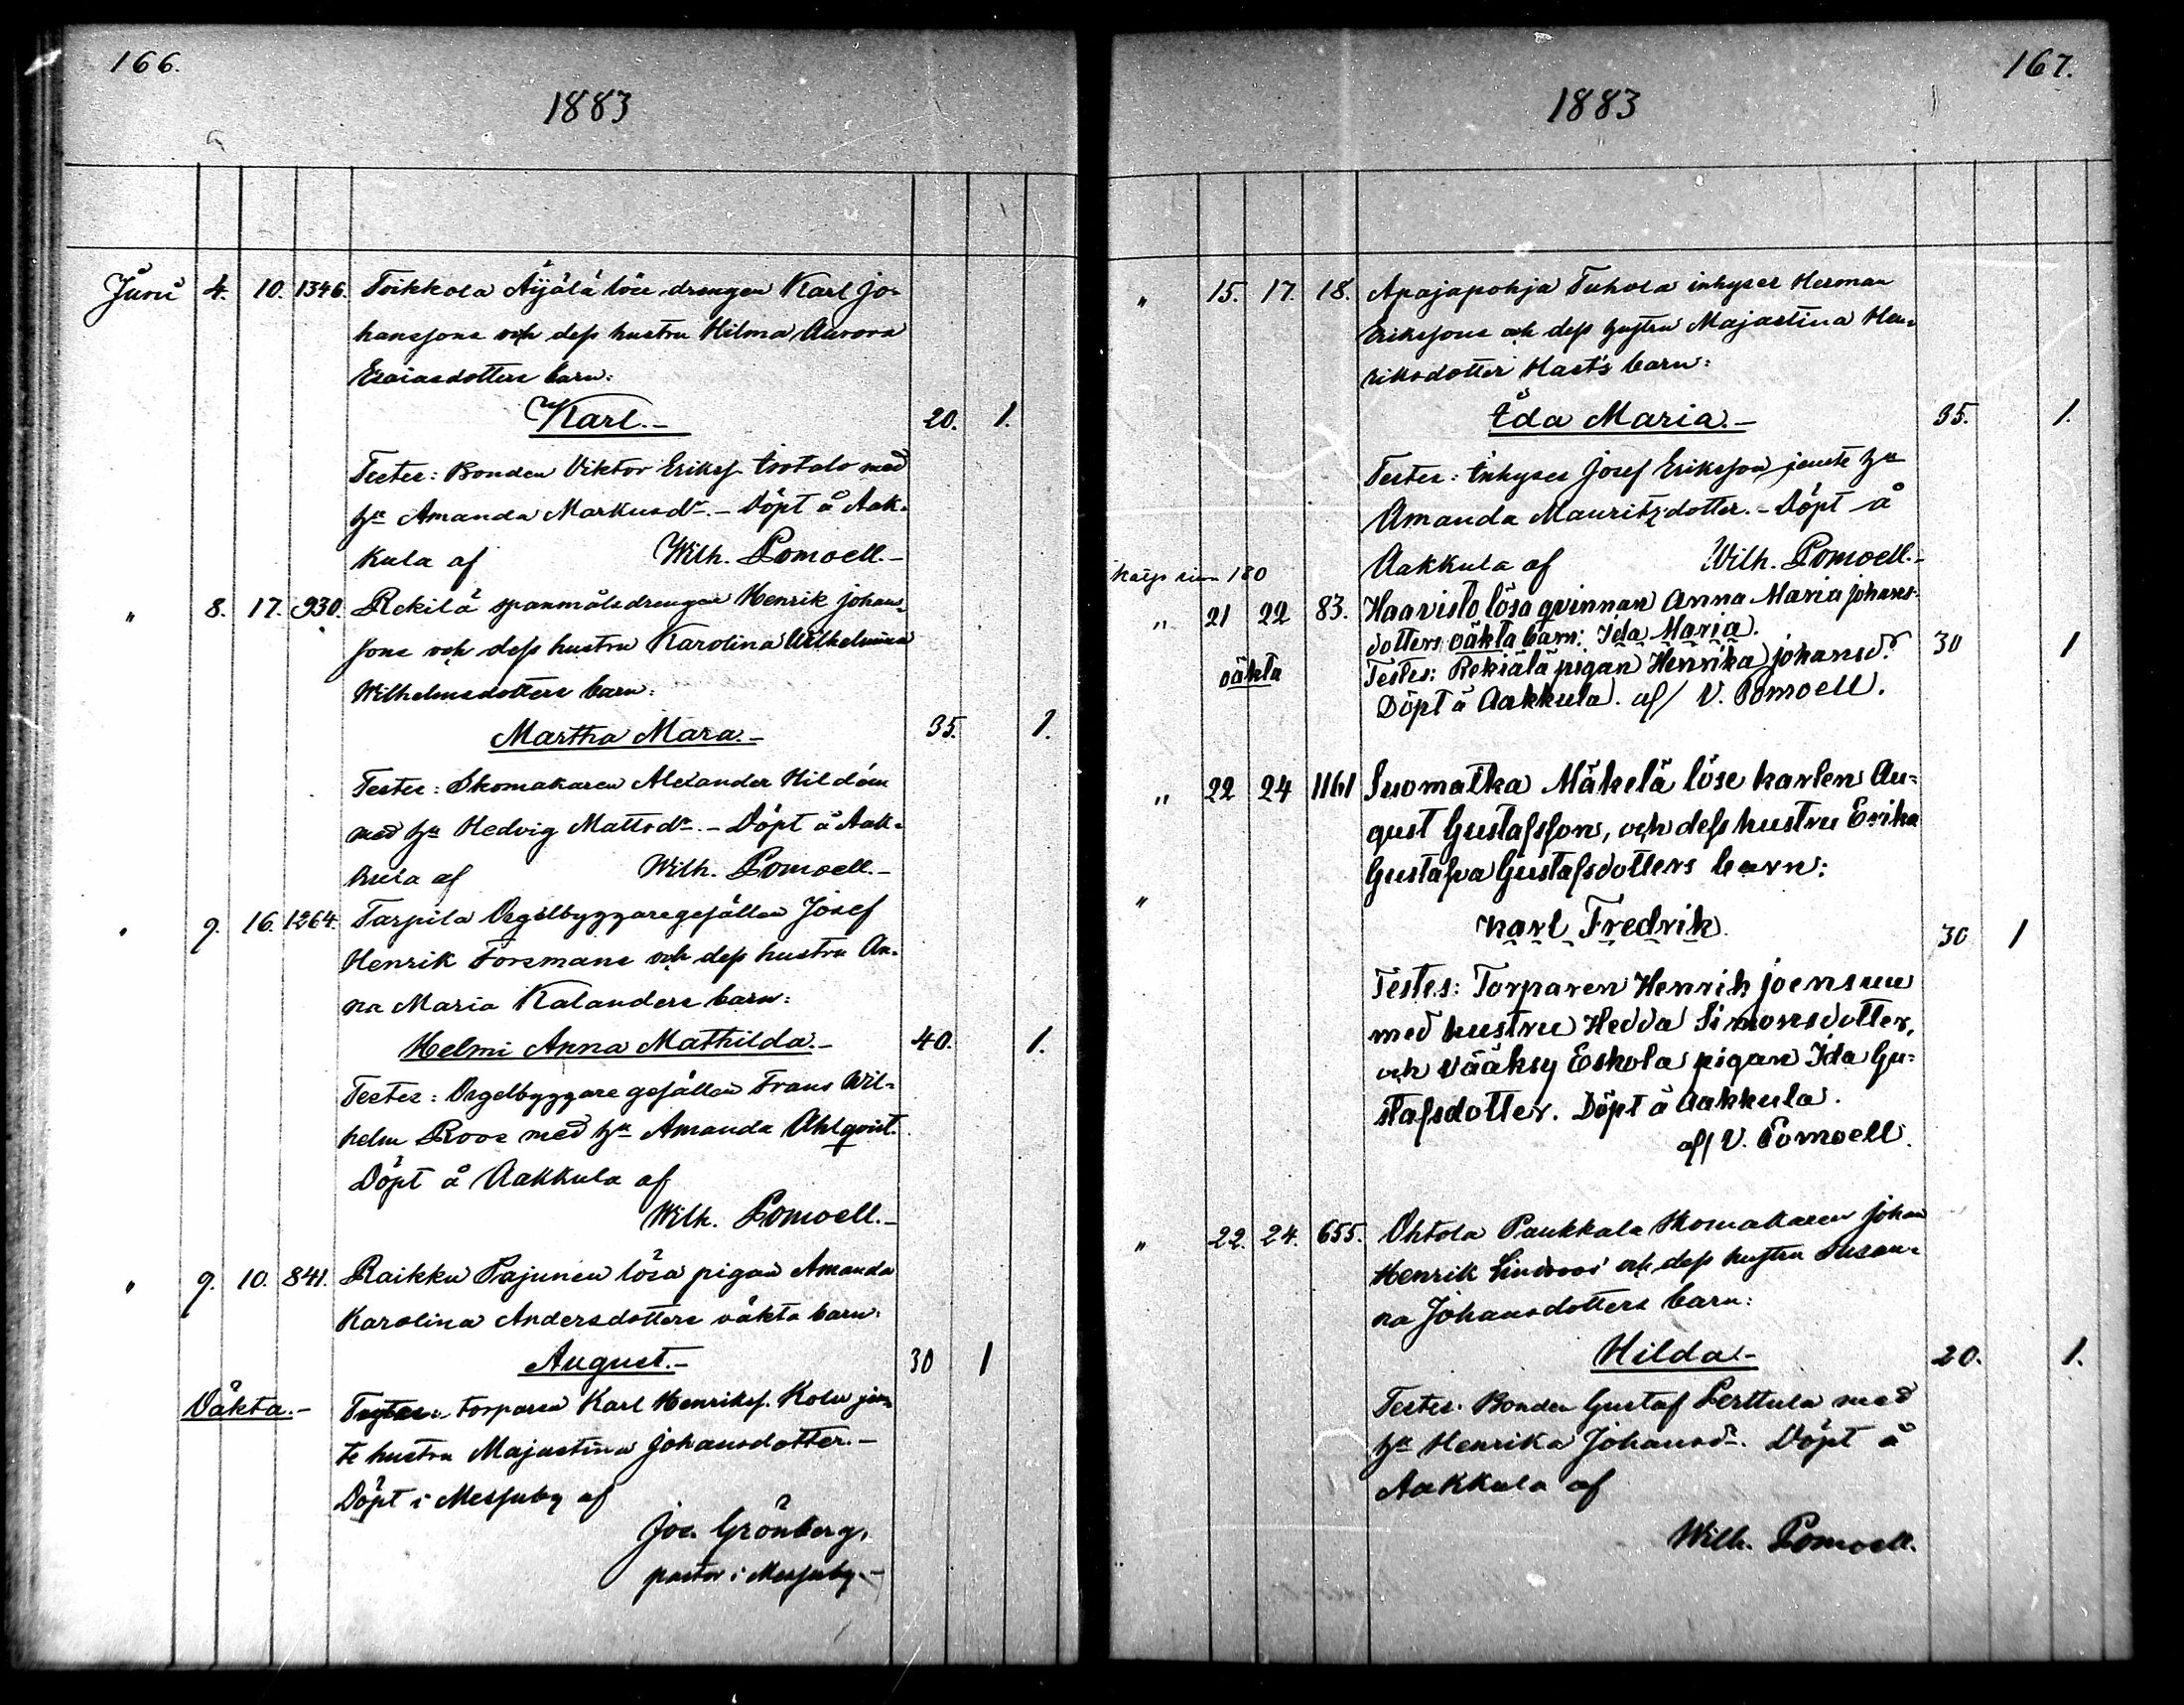 166.
1883
Juni 4. 10. 1346. Toikkola Äijälä löse drengen Karl Jo-
hanssons och dess hustru Hilma Aurora
Esaiasdotters barn:
Karl.- 20. 1.
Testes: Bonden Viktor Erikss. Isotalo med
hu Amanda Markusdr. - Döpt å Aak-
kula af Wilh. Pomoell.-
" 8. 17. 930. Rekilä spanmålsdrengen Henrik Johan-
sons och dess hustru Karolina Wilhelmina
Wilhelmsdotters barn:
Martha Mara.- 35. 1.
Testes: Skomakaren Alexander Hildén
med hu Hedvig Mattsdr. - Döpt å Aak-
kula af Wilh. Pomoell.-
" 9. 16. 1264. Tarpila Orgelbyggaregesällen Josef
Henrik Forsmans och dess hustru An-
na Maria Kalanders barn:
Helmi Anna Mathilda.- 40. 1.
Testes: Orgelbyggare gesällen Frans Wil-
helm Roos med hu Amanda Ahlqvist.
Döpt å Aakkula af
Wilh. Pomoell.-
" 9. 10. 841. Raikku Pajunen lösa pigan Amanda
Karolina Andersdotters oäkta barn:
August.- 30 1
Oäkta.- Testes: torparen Karl Henrikss. Kolu jem-
te hustru Majastina Johansdotter.-
Döpt i Messuby af
Jos. Grönberg,
pastor i Messuby.-
167.
1883
" 15. 17. 18. Apajapohja Tuhola inhyses Herman
Erikssons och dess hustru Majastina Hen-
riksdotter Hast's barn:
Ida Maria.- 35. 1.
Testes: Inhyses Josef Eriksson jemte hu
Amanda Mauritzdotter. - Döpt å
Aakkula af Wilh. Pomoell.-
180
" 21 22 83. Haavisto lösa qvinnan Anna Maria Johans-
dotters oäkta barn: Ida Maria. 30 1
oäkta Testes: Rekiälä pigan Henrika Johansdr.
Döpt å Aakkula. af/ V. Pomoell.
" 22 24 1161 Suomatka Mäkelä löse karlen Au-
gust Gustafsson, och dess hustru Erika
Gustafva Gustafsdotters barn:
" Karl Fredrik. 30 1
Testes: Torparen Henrik Joensuu
med hustru Hedda Simonsdotter,
och Vääksy Eskola pigan Ida Gu-
stafsdotter. Döpt å Aakkula.
af/ V. Pomoell.
" 22. 24. 655. Ohtola Paukkala Skomakaren Johan
Henrik Lindroos' och dess hustru Susan-
na Johansdotters barn:
Hilda.- 20. 1.
Testes: Bonden Gustaf Perttula med
hu Henrika Johansdr. Döpt å
Aakkula af
Wilh. Pomoell.